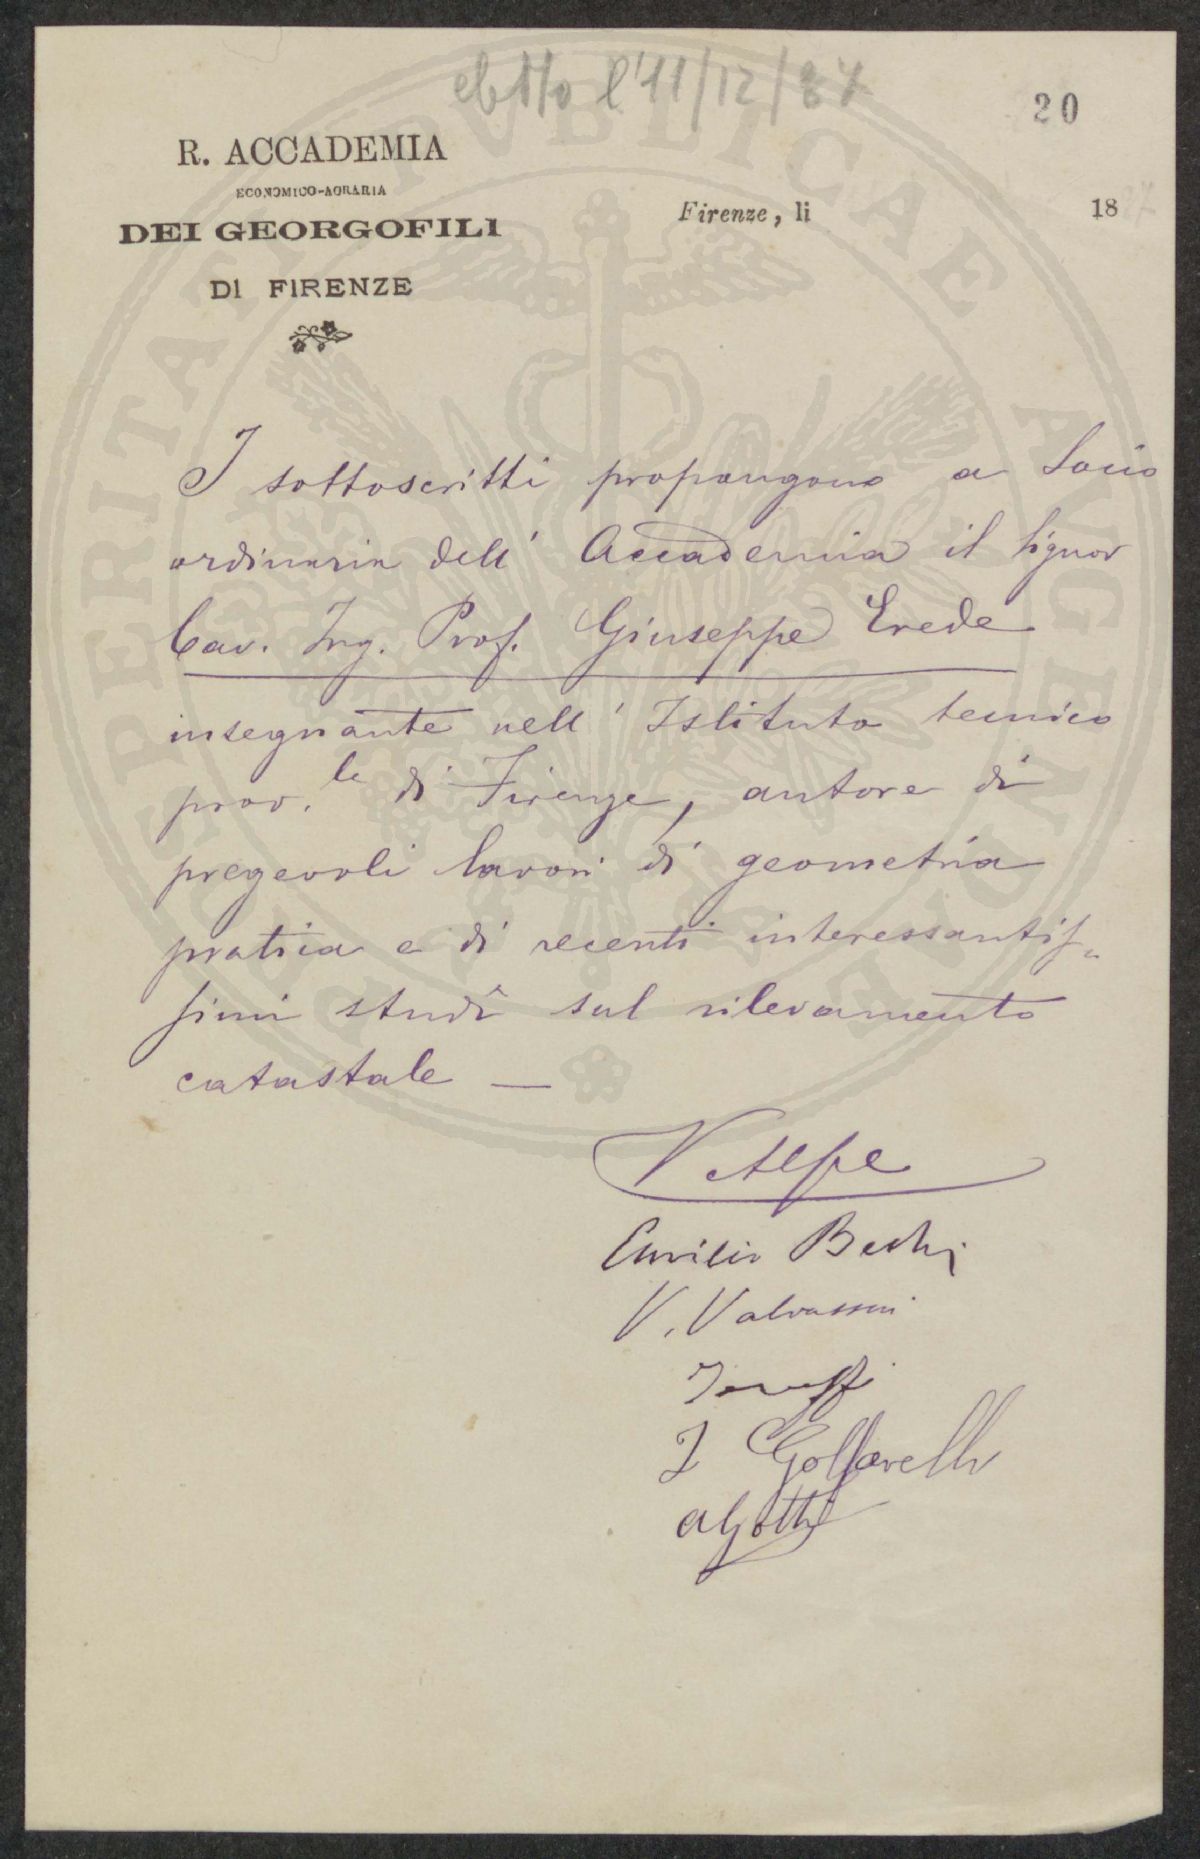 eletto l'11/12/87
20
R. ACCADEMIA
ECONOMICO-AGRARIA
DEI GEORGOFILI
DI FIRENZE
Firenze, li 1887
I sottoscritti propongono a Socio
ordinario dell' Accademia il Signor
Cav. Ing. Prof. Giuseppe Erede
insegnante nell' Istituto tecnico
prov.le di Firenze, autore di
pregevoli lavori di geometria
pratica e di recenti interessantis-
simi studî sul rilevamento
catastale —
V. Alpe
Emilio Bechi
V. Valvassori
I Golfarelli
A Gotti
PROSPERITATI PVBLICAE AVGENDAE